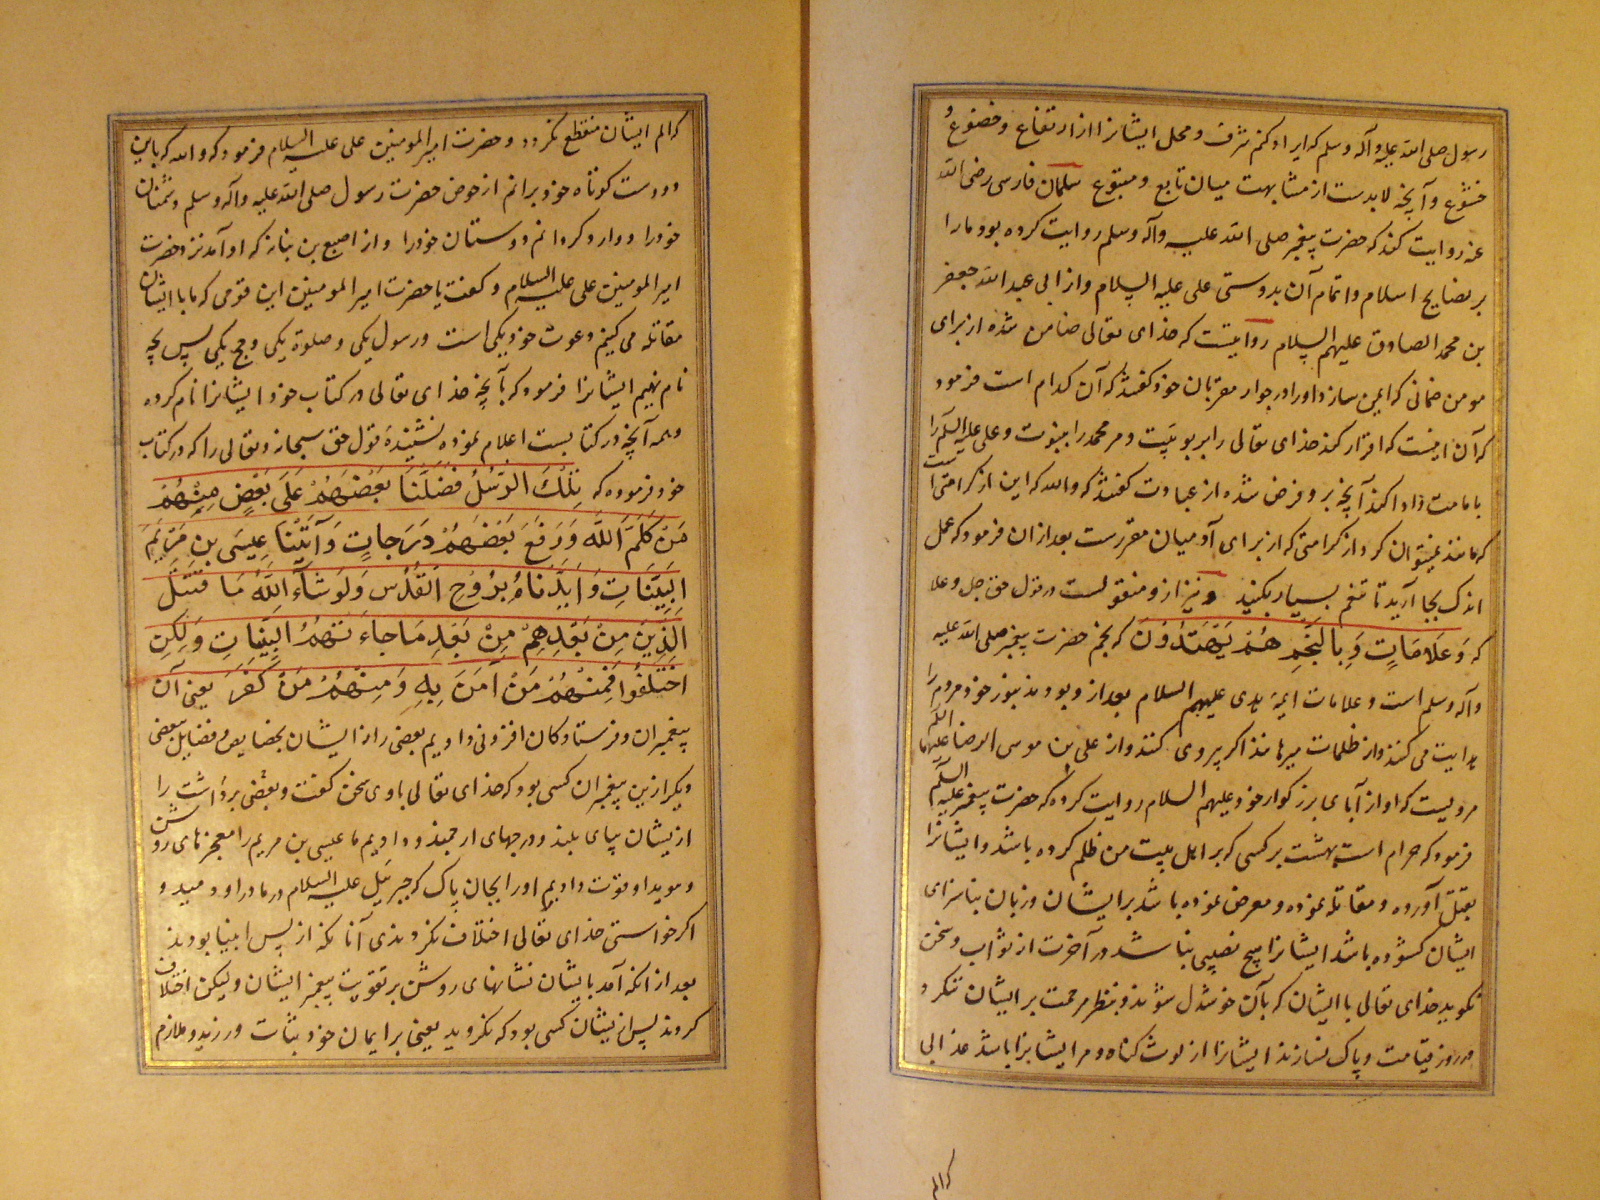 رسول صلی الله علیه وآله وسلم که ایراد کنم شرف و محل ایشانرا از ارتفاع و خضوع و
خشوع و آنچه لابدست از مشابهت میان تابع و متبوع سلمان فارسی رضی الله
عنه روایت کند که حضرت پیغمبر صلی الله علیه وآله وسلم روایت کرده بود مارا
بر نصایح اسلام و اتمام آن بدوستی علی علیه السلام و از ابی عبد الله جعفر
بن محمد الصادق علیهم السلام روایتست که خدای تعالی ضامن شده از برای
مومن ضمانی که ایمن سازد اورا در جوار مقربان خود گفتند که آن کدام است فرمود
که آن اینست که اقرار کند خدای تعالی را بربوبیت و مر محمد را بنبوت و علی علیه السلام را
بامامت و ادا کند آنچه برو فرض شده از عبادت گفتند که والله که این از کرامتی است
که مانند نمیتوان کرد از کرامتی که از برای آدمیان مقررست بعد ازان فرمود که عمل
اندک بجا آرید تا تنعم بسیار بکنید و نیز ازو منقولست در قول حق جل و علا
که وَعَلَامَاتٍ وَبِالنَّجْمِ هُمْ يَهْتَدُونَ که نجم حضرت پیغمبر صلی الله علیه
وآله وسلم است و علامات ایمه هدی علیهم السلام بعد ازو بودند بنور خود مردم را
هدایت می کنند از ظلمات میرهانند اگر پیروی کنند و از علی بن موسی الرضا علیهما السلم
مرویست که او از آبای بزرگوار خود علیهم السلام روایت کرده که حضرت پیغمبر علیه السلم
فرمود که حرام است بهشت بر کسی که بر اهل بیت من ظلم کرده باشد و ایشانرا
بقتل آورده و مقاتله نموده و معرض نموده باشد بر ایشان و زبان بناسزای
ایشان گشوده باشد ایشانرا هیچ نصیبی نباشد در آخرت از ثواب و سخن
نگوید خدای تعالی با ایشان که بآن خوشدل شوند و بنظر مرحمت بر ایشان ننگرد
در روز قیامت و پاک نسازند ایشانرا از لوث گناه و مر ایشانرا باشد عذابی
که الم
که الم ایشان منقطع نگردد و حضرت امیر المومنین علی علیه السلام فرمود که والله که باین
دو دست کوتاه خود برانم از حوض حضرت رسول صلی الله علیه وآله وسلم دشمنان
خودرا و وارد گردانم دوستان خودرا و از اصبغ بن نباته که او آمد نزد حضرت
امیر المومنین علی علیه السلام و گفت یا حضرت امیر المومنین این قومی که ما با ایشان
مقاتله می کنیم دعوت خود یکی است و رسول یکی و صلوة یکی و حج یکی پس بچه
نام نهیم ایشانرا فرمود که بآنچه خدای تعالی در کتاب خود ایشانرا نام کرده
و همه آنچه در کتابست اعلام نموده نشنیدهٔ قول حق سبحانه و تعالی را که در کتاب
خود فرموده که تِلْكَ الرُّسُلُ فَضَّلْنَا بَعْضَهُمْ عَلَى بَعْضٍ مِنْهُمْ
مَنْ كَلَّمَ اللَّهُ وَرَفَعَ بَعْضَهُمْ دَرَجَاتٍ وَآتَيْنَا عِيسَى بْنِ مَرْيَمَ
الْبَيِّنَاتِ وَأَيَّدْنَاهُ بِرُوحِ الْقُدُسِ وَلَوْ شَاءَ اللَّهُ مَا قْتَتَلَ
الَّذِينَ مِنْ بَعْدِهِمْ مِنْ بَعْدِ مَا جَاءَتْهُمُ الْبَيِّنَاتِ وَلَكِنِ
اخْتَلَفُوا فَمِنْهُمْ مَنْ آمَنَ بِهِ وَمِنْهُمْ مَنْ كَفَرَ یعنی آن
پیغمبران و فرستادگان افزونی دادیم بعضی را از ایشان بخصایص و فضایل ببعضی
دیگر ازین پیغمبران کسی بود که خدای تعالی باوی سخن گفت و بعضی برداشت را
ازیشان بپای بلند و درجهای ارجمند و دادیم ما عیسی بن مریم را معجزهای روشن
و موید او قوت دادیم اورا بجان پاک که جبرئیل علیه السلام در مادر او دمید و
اگر خواستی خدای تعالی اختلاف نکردندی آنانکه از پس انبیا بودند
بعد از انکه آمد بایشان نشانهای روشن بر تقویت پیغمبر ایشان ولیکن اختلاف
کردند پس ازیشان کسی بود که بگروید یعنی بر ایمان خود بثبات ورزید و ملازم